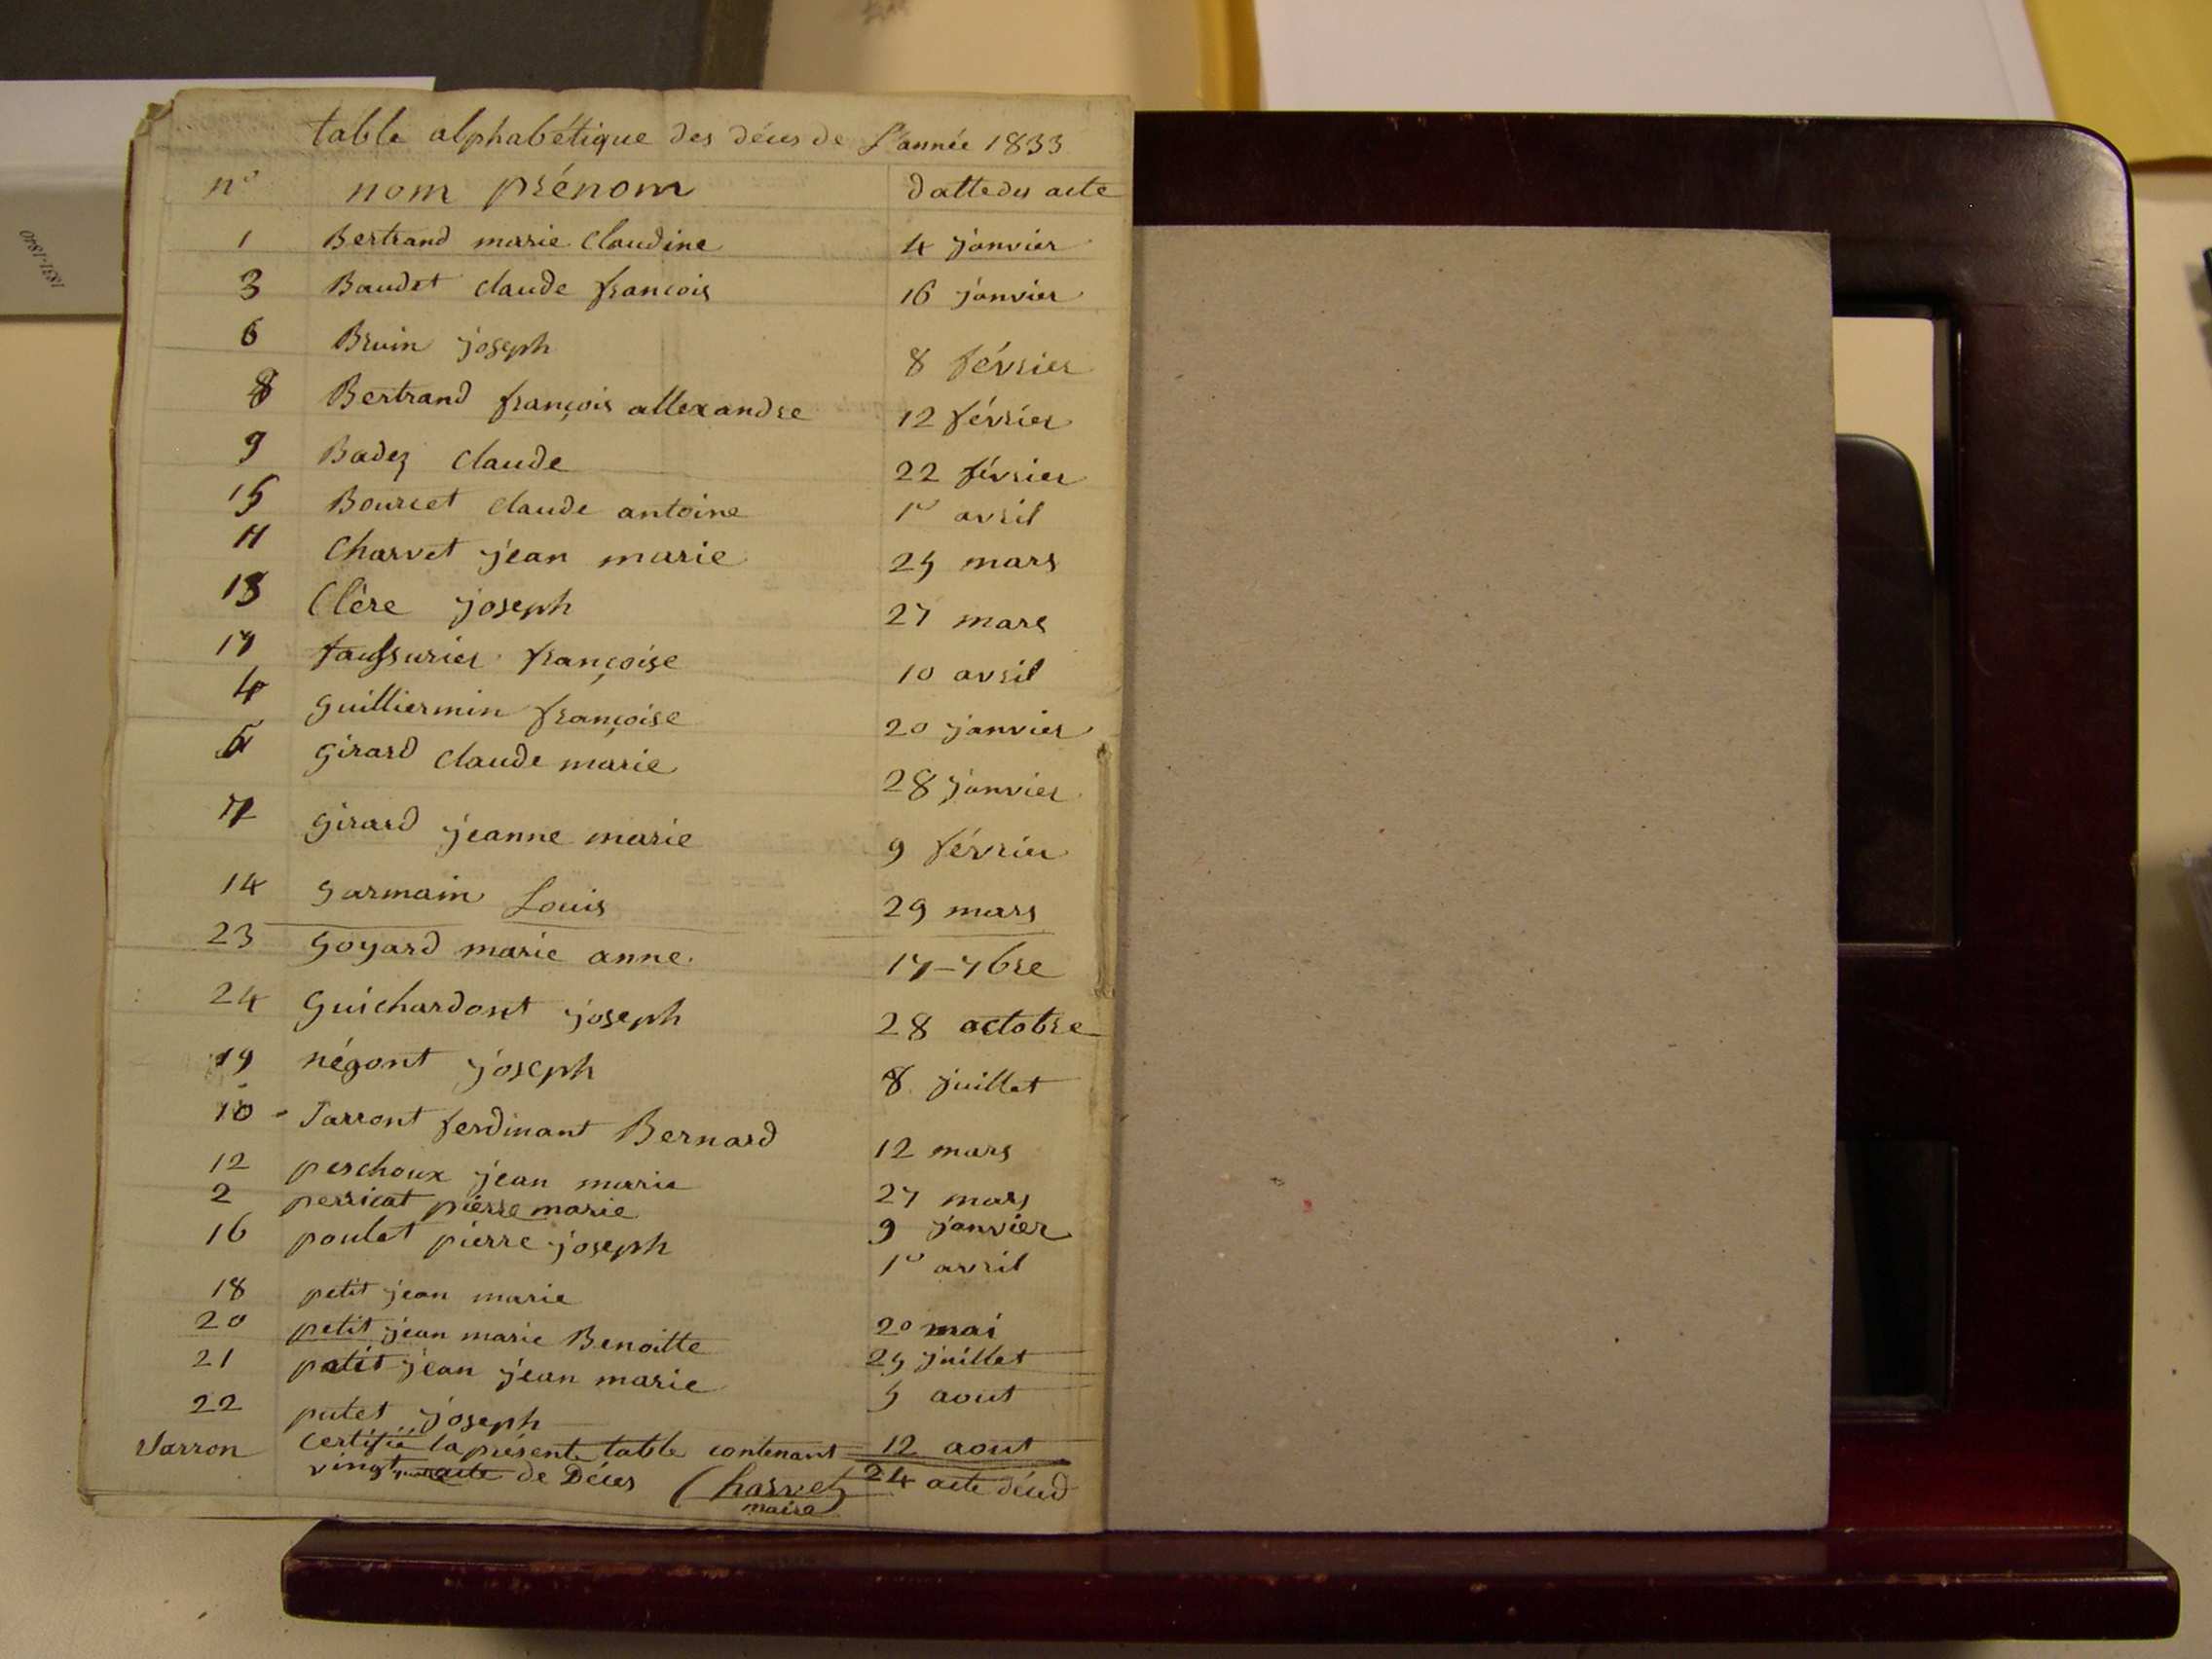 table alphabétique des décès de L'année 1833
n° nom prénom datte des acte
1 Bertrand marie Claudine 4 janvier
3 Baudet claude francois 16 janvier
6 Bruin joseph 8 février
8 Bertrand françois allexandre 12 février
9 Badez claude 22 février
15 Bourcet claude antoine 1er avril
11 Charvet jean marie 25 mars
13 Clère joseph 27 mars
17 faussurier françoise 10 avril
4 guilliermin françoise 20 janvier
5 girard claude marie 28 janvier
7 girard jeanne marie 9 février
14 garmain Louis 29 mars
23 goyard marie anne 17-7bre
24 guichardont joseph 28 octobre
19 négont joseph 8 juillet
10 - Jarront ferdinant Bernard 12 mars
12 peschoux jean marie 27 mars
2 perricat pierre marie 9 janvier
16 poulet pierre joseph 1er avril
18 petit jean marie 20 mai
20 petit jean marie Benoitte 25 juillet
21 petit jean jean marie 5 aout
22 putet joseph 12 aout
Jarron certifié la présente table contenant
vingt acte de Décès Charvet 24 acte décèd
maire
1831-1840